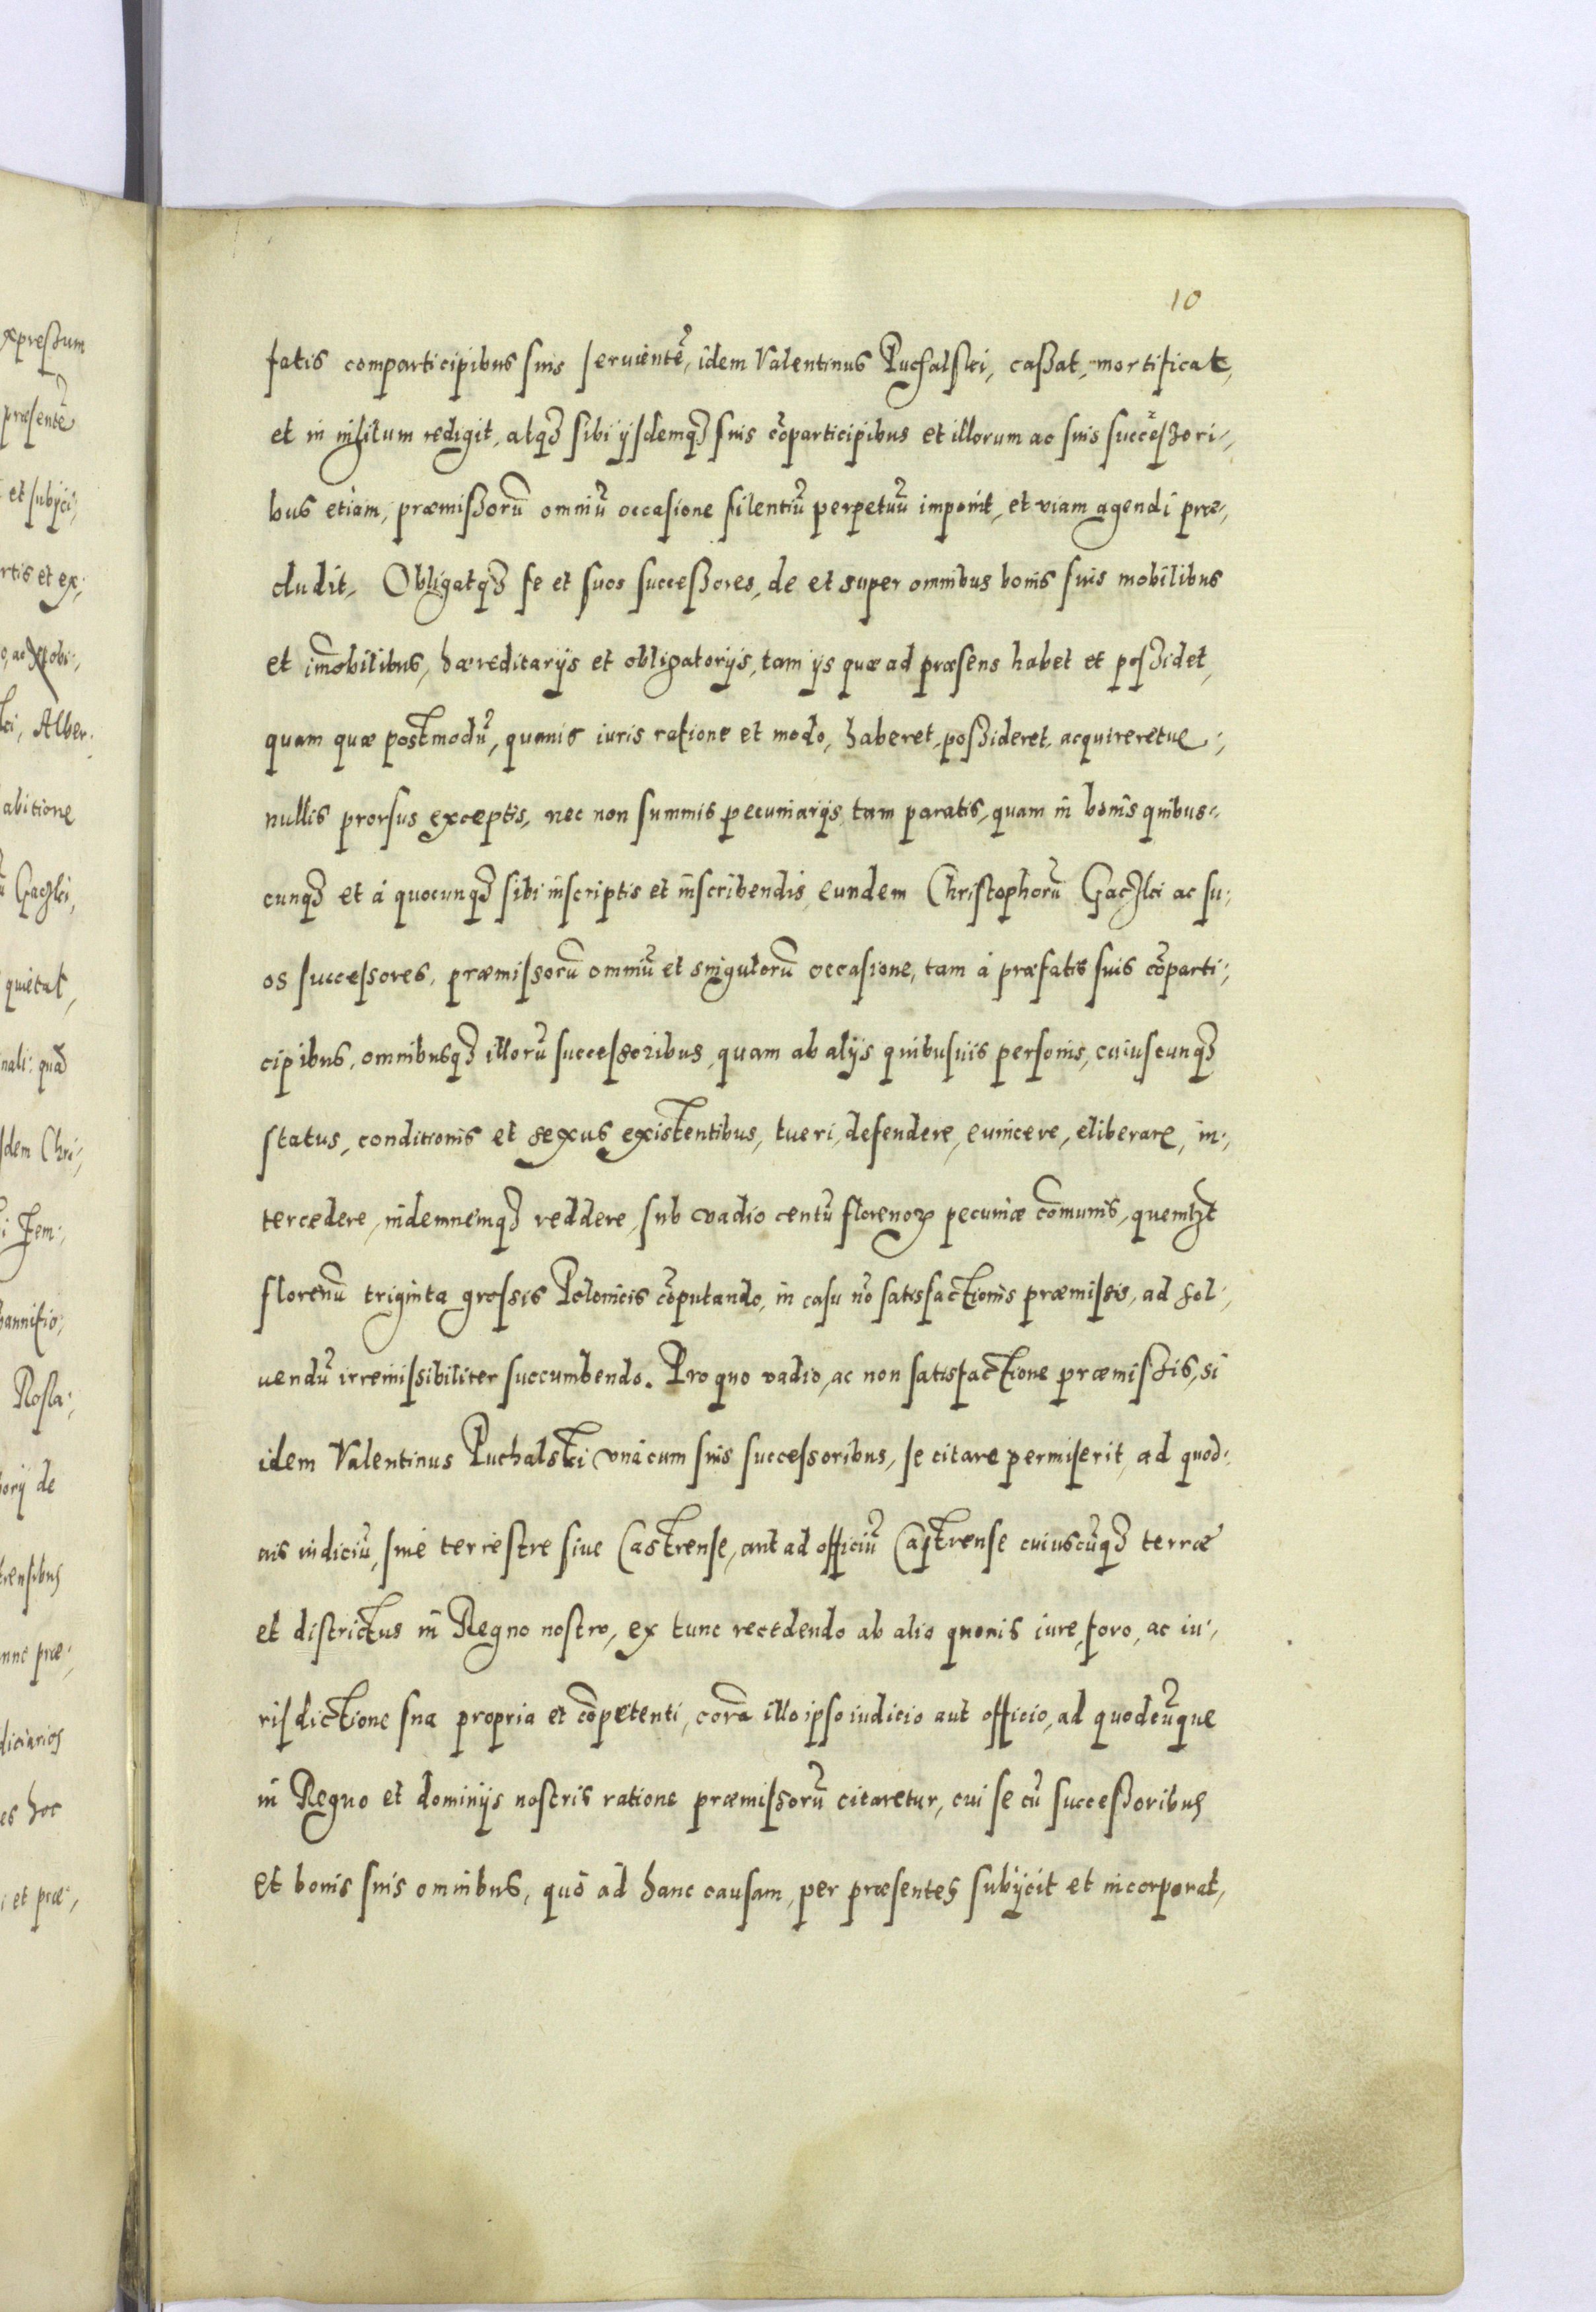 10
fatis comparticipibus suis seruientē, idem Valentinus Puchalski, cassat, mortificat,
et in nihilum redigit, atqꝫ sibi ijsdemqꝫ suis cōparticipibus et illorum ac suis successori-,
bus etiam, præmissorū omniū occasione silentiū perpetuū imponit, et viam agendi præ-,
cludit, Obligatqꝫ se et suos successores, de et super omnibus bonis suis mobilibus
et im̄obilibus, hæreditarijs et obligatorijs, tam ijs quæ ad præsens habet et possidet,
quam quæ postmodū, quouis iuris ratione et modo, haberet, possideret, acquireretue:,
nullis prorsus exceptis, nec non summis pecuniarijs, tam paratis, quam in bonis quibus-,
cunqꝫ et á quocunqꝫ sibi inscriptis et inscribendis, eundem Christophorū Gaczki ac su:,
os successores, præmissorū omniū et singulorū occasione, tam á præfatis suis cōparti:,
cipibus, omnibusqꝫ illorū successoribus, quam ab alijs quibusuis personis, cuiuscunqꝫ
status, conditionis et sexus existentibus, tueri, defendere, euincere, eliberare, in:,
tercedere, indemnemqꝫ reddere, sub vadio centū florenoꝝ pecuniæ cōmunis, quemlꝫt
florenū triginta grossis Polonicis cōputando, in casu nō satisfactionis præmissis, ad sol:,
uendū irremissibiliter succumbendo. Pro quo vadio, ac non satisfactione præmissis, si
idem Valentinus Puchalski vná cum suis successoribus, se citare permiserit, ad quod:
uis iudiciū, siue terrestre siue Castrense, aut ad officiū Castrense cuiuscūqꝫ terræ
et districtus in Regno nostro, ex tunc recedendo ab alio quouis iure, foro, ac iu:,
risdictione sua propria et cōpetenti, corā illo ipso iudicio aut officio, ad quodcūque
in Regno et dominijs nostris ratione præmissorū citaretur, cui se cū successoribus
et bonis suis omnibus, quò ad hanc causam, per præsentes subijcit et incorporat,